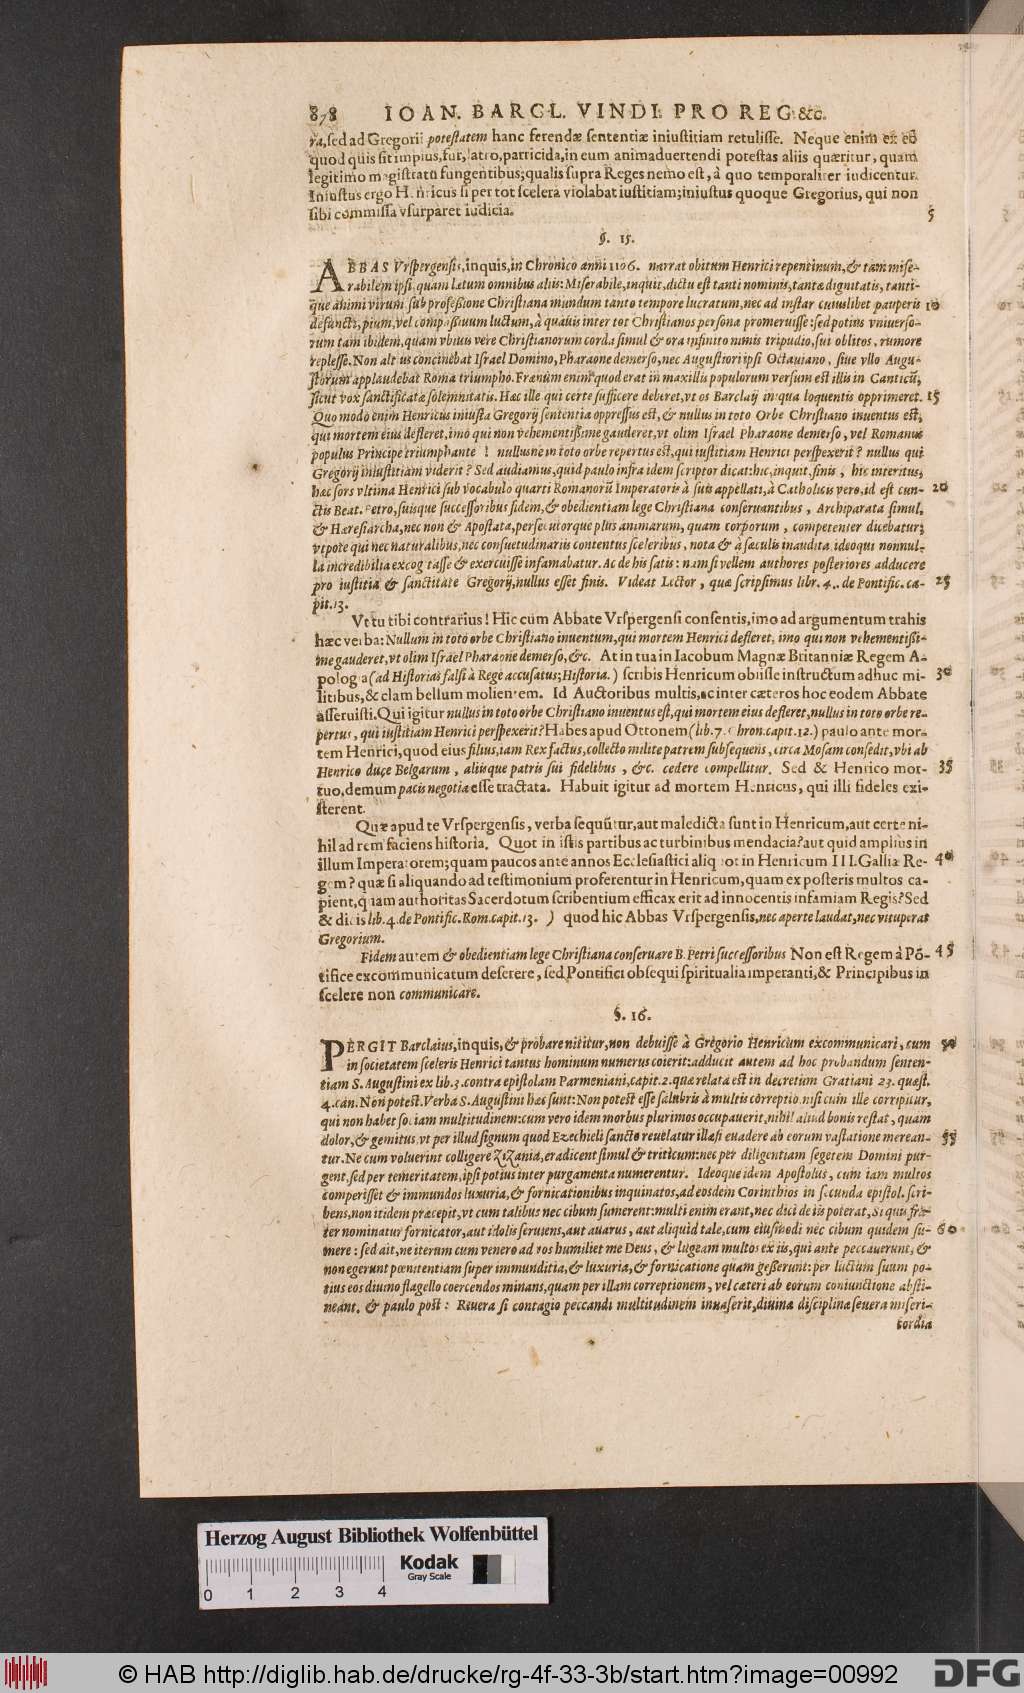 878 IOAN. BARCL. VINDI. PRO REG. &c.
ra, sed ad Gregorii potestatem hanc ferendæ sententiæ iniustitiam retulisse. Neque enim ex eo
quod quis sit impius, fur, latro, parricida, in eum animaduertendi potestas aliis quæritur, quam
legitimo magistratu fungentibus; qualis supra Reges nemo est, à quo temporaliter iudicentur.
Iniustus ergo Henricus si per tot scelera violabat iustitiam; iniustus quoque Gregorius, qui non
sibi commissa vsurparet iudicia. 5
§. 15.
ABBAS Vrspergensis, inquis, in Chronico anni 1106. narrat obitum Henrici repentinum, & tam mise-
rabilem ipsi, quam lætum omnibus aliis: Miserabile, inquit, dictu est tanti nominis, tantæ dignitatis, tanti-
que animi virum sub professione Christiana mundum tanto tempore lucratum, nec ad instar cuiuslibet pauperis 10
defuncti, pium, vel compassiuum luctum, à quauis inter tot Christianos persona promeruisse: sed potius vniuerso-
rum tam ibidem, quam vbiuis vere Christianorum corda simul & ora infinito nimis tripudio, sui oblitos, rumore
replesse. Non altius concinebat Israel Domino, Pharaone demerso, nec Augustiori ipsi Octauiano, siue vllo Augu-
storum applaudebat Roma triumpho. Frænum enim quod erat in maxillis populorum versum est illis in Canticū,
sicut vox sanctificatæ solemnitatis. Hæc ille qui certe sufficere deberet, vt os Barclaij iniqua loquentis opprimeret. 15
Quo modo enim Henricus iniusta Gregorij sententia oppressus est, & nullus in toto Orbe Christiano inuentus est,
qui mortem eius defleret, imo qui non vehementissime gauderet, vt olim Israel Pharaone demerso, vel Romanus
populus Principe triumphante! nullusne in toto orbe repertus est, qui iustitiam Henrici perspexerit? nullus qui
Gregorij iniustitiam viderit? Sed audiamus, quid paulo infra idem scriptor dicat: hic, inquit, finis, hic interitus,
hæc sors vltima Henrici sub vocabulo quarti Romanorū Imperatoris à suis appellati, à Catholicis vero, id est cun- 20
ctis Beat. Petro, suisque successoribus fidem, & obedientiam lege Christiana conseruantibus, Archipirata simul,
& Hæresiarcha, nec non & Apostata, persecutorque plus animarum, quam corporum, competenter dicebatur;
vtpote qui nec naturalibus, nec consuetudinariis contentus sceleribus, nota & à sæculis inaudita, ideoqui nonnul-
la incredibilia excogitasse & exercuisse infamabatur. Ac de his satis: nam si vellem authores posteriores adducere
pro iustitia & sanctitate Gregorij, nullus esset finis. Videat Lector, quæ scripsimus libr. 4. de Pontific. ca- 25
pit. 13.
Vt tu tibi contrarius! Hic cum Abbate Vrspergensi consentis, imo ad argumentum trahis
hæc verba: Nullum in toto orbe Christiano inuentum, qui mortem Henrici defleret, imo qui non vehementissi-
me gauderet, vt olim Israel Pharaone demerso, &c. At in tua in Iacobum Magnæ Britanniæ Regem A-
pologia (ad Historias falsi à Rege accusatus; Historia.) scribis Henricum obiisse instructum adhuc mi- 30
litibus, & clam bellum molientem. Id Auctoribus multis, ac inter cæteros hoc eodem Abbate
asseruisti. Qui igitur nullus in toto orbe Christiano inuentus est, qui mortem eius defleret, nullus in toto orbe re-
pertus, qui iustitiam Henrici perspexerit? Habes apud Ottonem (lib. 7. Chron. capit. 12.) paulo ante mor-
tem Henrici, quod eius filius, iam Rex factus, collecto milite patrem subsequens, circa Mosam consedit, vbi ab
Henrico duce Belgarum, aliisque patris sui fidelibus, &c. cedere compellitur. Sed & Henrico mor- 35
tuo, demum pacis negotia esse tractata. Habuit igitur ad mortem Henricus, qui illi fideles exi-
sterent.
Quæ apud te Vrspergensis, verba sequūtur, aut maledicta sunt in Henricum, aut certe ni-
hil ad rem faciens historia. Quot in istis partibus ac turbinibus mendacia? aut quid amplius in
illum Imperatorem; quam paucos ante annos Ecclesiastici aliquot in Henricum III. Galliæ Re- 40
gem? quæ si aliquando ad testimonium proferentur in Henricum, quam ex posteris multos ca-
pient, quam authoritas Sacerdotum scribentium efficax erit ad innocentis infamiam Regis? Sed
& dicis lib. 4. de Pontific. Rom. capit. 13. ) quod hic Abbas Vrspergensis, nec aperte laudat, nec vituperat
Gregorium.
Fidem autem & obedientiam lege Christiana conseruare B. Petri successoribus Non est Regem à Pō- 45
tifice excommunicatum deserere, sed Pontifici obsequi spiritualia imperanti, & Principibus in
scelere non communicare.
§. 16.
PERGIT Barclaius, inquis, & probare nititur, non debuisse à Gregorio Henricum excommunicari, cum 50
in societatem sceleris Henrici tantus hominum numerus coierit: adducit autem ad hoc probandum senten-
tiam S. Augustini ex lib. 3. contra epistolam Parmeniani, capit. 2. quæ relata est in decretum Gratiani 23. quæst.
4. can. Non potest. Verba S. Augustini hæc sunt: Non potest esse salubris à multis correptio, nisi cum ille corripitur,
qui non habet sociam multitudinem: cum vero idem morbus plurimos occupauerit, nihil aliud bonis restat, quam
dolor, & gemitus, vt per illud signum quod Ezechieli sancto reuelatur illæsi euadere ab eorum vastatione merean- 55
tur. Ne cum voluerint colligere zizania, eradicent simul & triticum: nec per diligentiam segetem Domini pur-
gent, sed per temeritatem, ipsi potius inter purgamenta numerentur. Ideoque idem Apostolus, cum iam multos
comperisset & immundos luxuria, & fornicationibus inquinatos, ad eosdem Corinthios in secunda epistol. scri-
bens, non itidem præcepit, vt cum talibus nec cibum sumerent: multi enim erant, nec dici de iis poterat, Si quis fra-
ter nominatur fornicator, aut idolis seruiens, aut auarus, aut aliquid tale, cum eiusmodi nec cibum quidem su- 60
mere: sed ait, ne iterum cum venero ad vos humiliet me Deus, & lugeam multos ex iis, qui ante peccauerunt, &
non egerunt pœnitentiam super immunditia, & luxuria, & fornicatione quam gesserunt: per luctum suum po-
tius eos diuino flagello coercendos minans, quam per illam correptionem, vel cæteri ab eorum coniunctione absti-
neant. & paulo post: Reuera si contagio peccandi multitudinem inuaserit, diuinæ disciplinæ seuera miseri-
cordia
Herzog August Bibliothek Wolfenbüttel
Kodak
Gray Scale
0 1 2 3 4
© HAB http://diglib.hab.de/drucke/rg-4f-33-3b/start.htm?image=00992
DFG